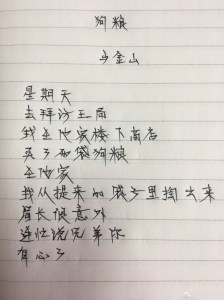 狗粮
马金山
星期天
去拜访王局
我在他家楼下商店
买了两袋狗粮
在他家
我从提来的袋子里掏出来
局长很意外
连忙说兄弟你
有心了